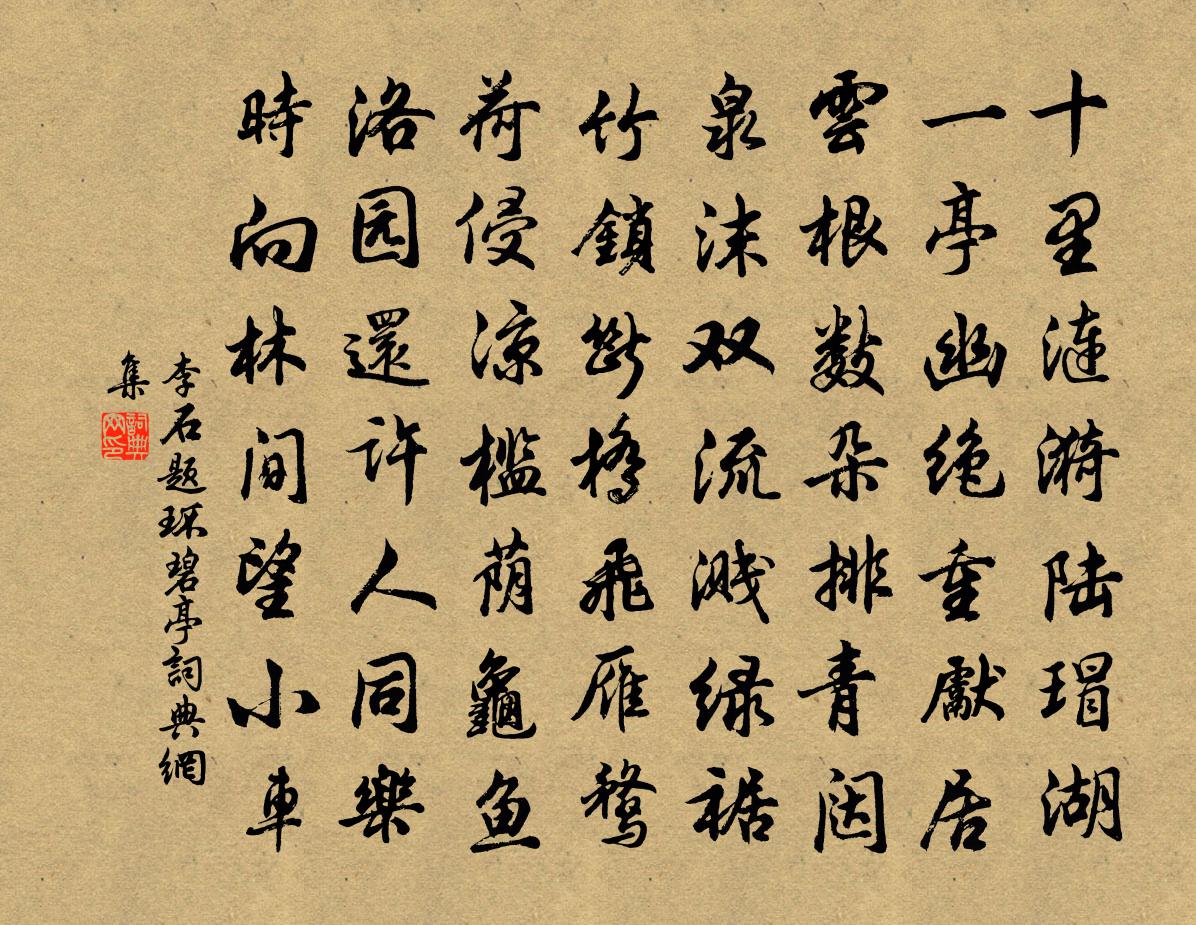 十里漣漪陆瑁湖
一亭幽绝重獻居
雲根數朵排青闼
泉沫双流濺绿裾
竹鎖斷橋飛雁鶩
荷侵涼檻荫龜鱼
洛园還许人同樂
時向林間望小車
李石题环碧亭詞典網
集
詞典网印